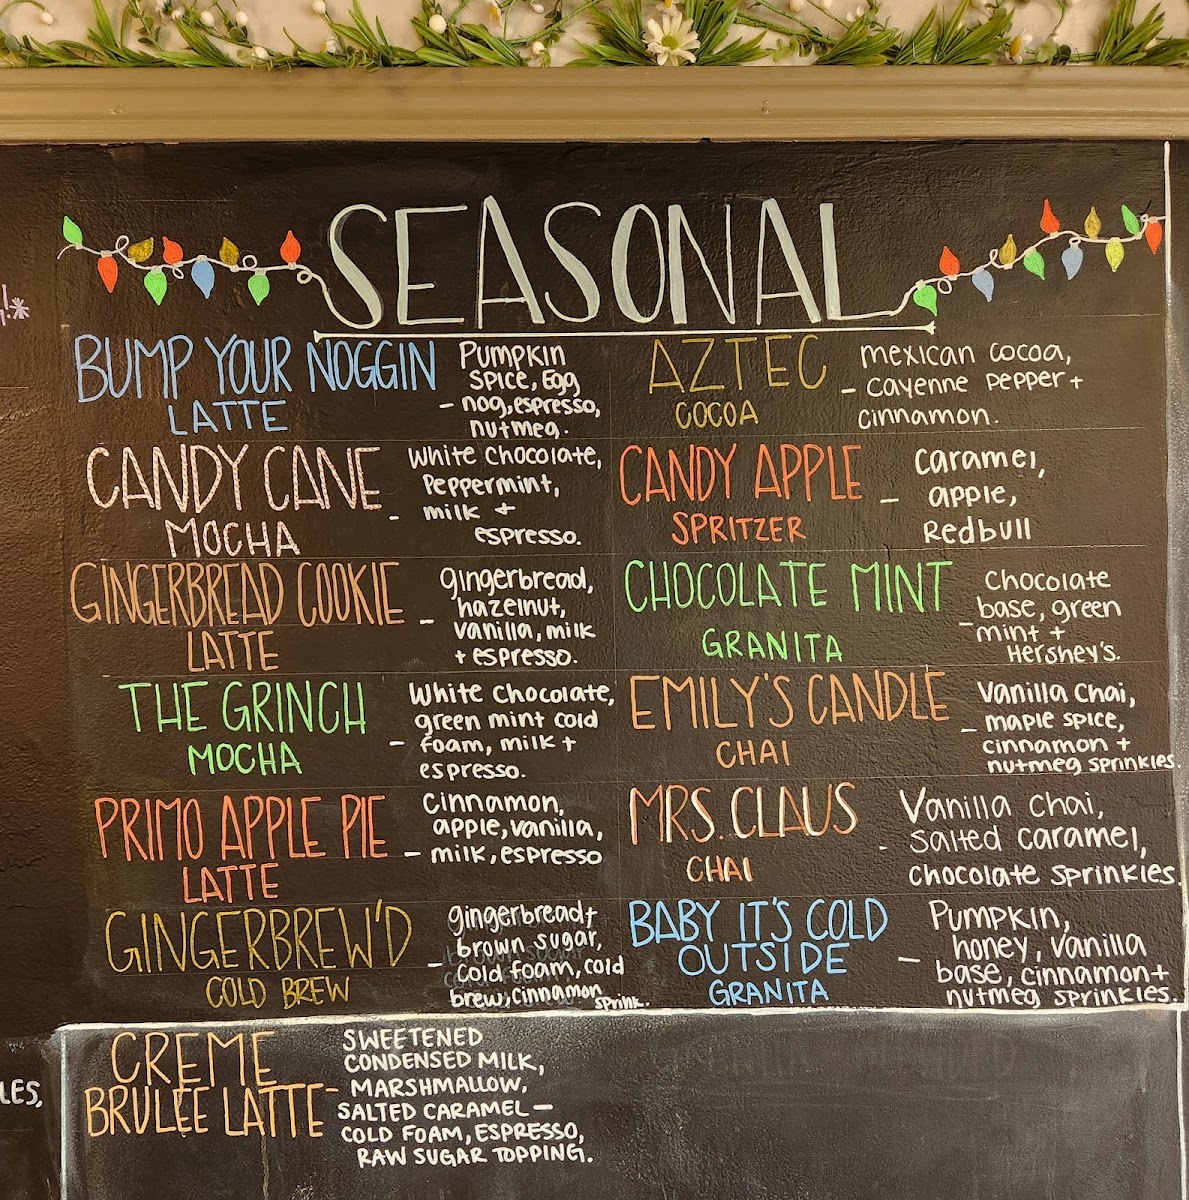 SEASONAL
BUMP YOUR NOGGIN
LATTE
Pumpkin
Spice, Egg
- nog, espresso,
nutmeg.
CANDY CANE
MOCHA
White Chocolate,
Peppermint,
- milk +
espresso.
GINGERBREAD COOKIE
LATTE
gingerbread,
hazelnut,
- vanilla, milk
+ espresso.
THE GRINCH
MOCHA
White Chocolate,
green mint cold
- foam, milk +
espresso.
PRIMO APPLE PIE
LATTE
Cinnamon,
apple, vanilla,
- milk, espresso
GINGERBREW'D
COLD BREW
gingerbread+
brown sugar,
- cold foam, cold
brew, cinnamon sprink.
AZTEC
COCOA
mexican cocoa,
- cayenne pepper +
cinnamon.
CANDY APPLE
SPRITZER
Caramel,
- apple,
Redbull
CHOCOLATE MINT
GRANITA
Chocolate
base, green
- mint +
Hershey's.
EMILY'S CANDLE
CHAI
Vanilla Chai,
- maple spice,
cinnamon +
nutmeg sprinkles.
MRS. CLAUS
CHAI
Vanilla Chai,
- Salted Caramel,
chocolate sprinkles.
BABY IT'S COLD
OUTSIDE
GRANITA
Pumpkin,
- honey, vanilla
base, cinnamon+
nutmeg sprinkles.
CREME
BRULEE LATTE -
SWEETENED
CONDENSED MILK,
MARSHMALLOW,
SALTED CARAMEL —
COLD FOAM, ESPRESSO,
RAW SUGAR TOPPING.
LES,